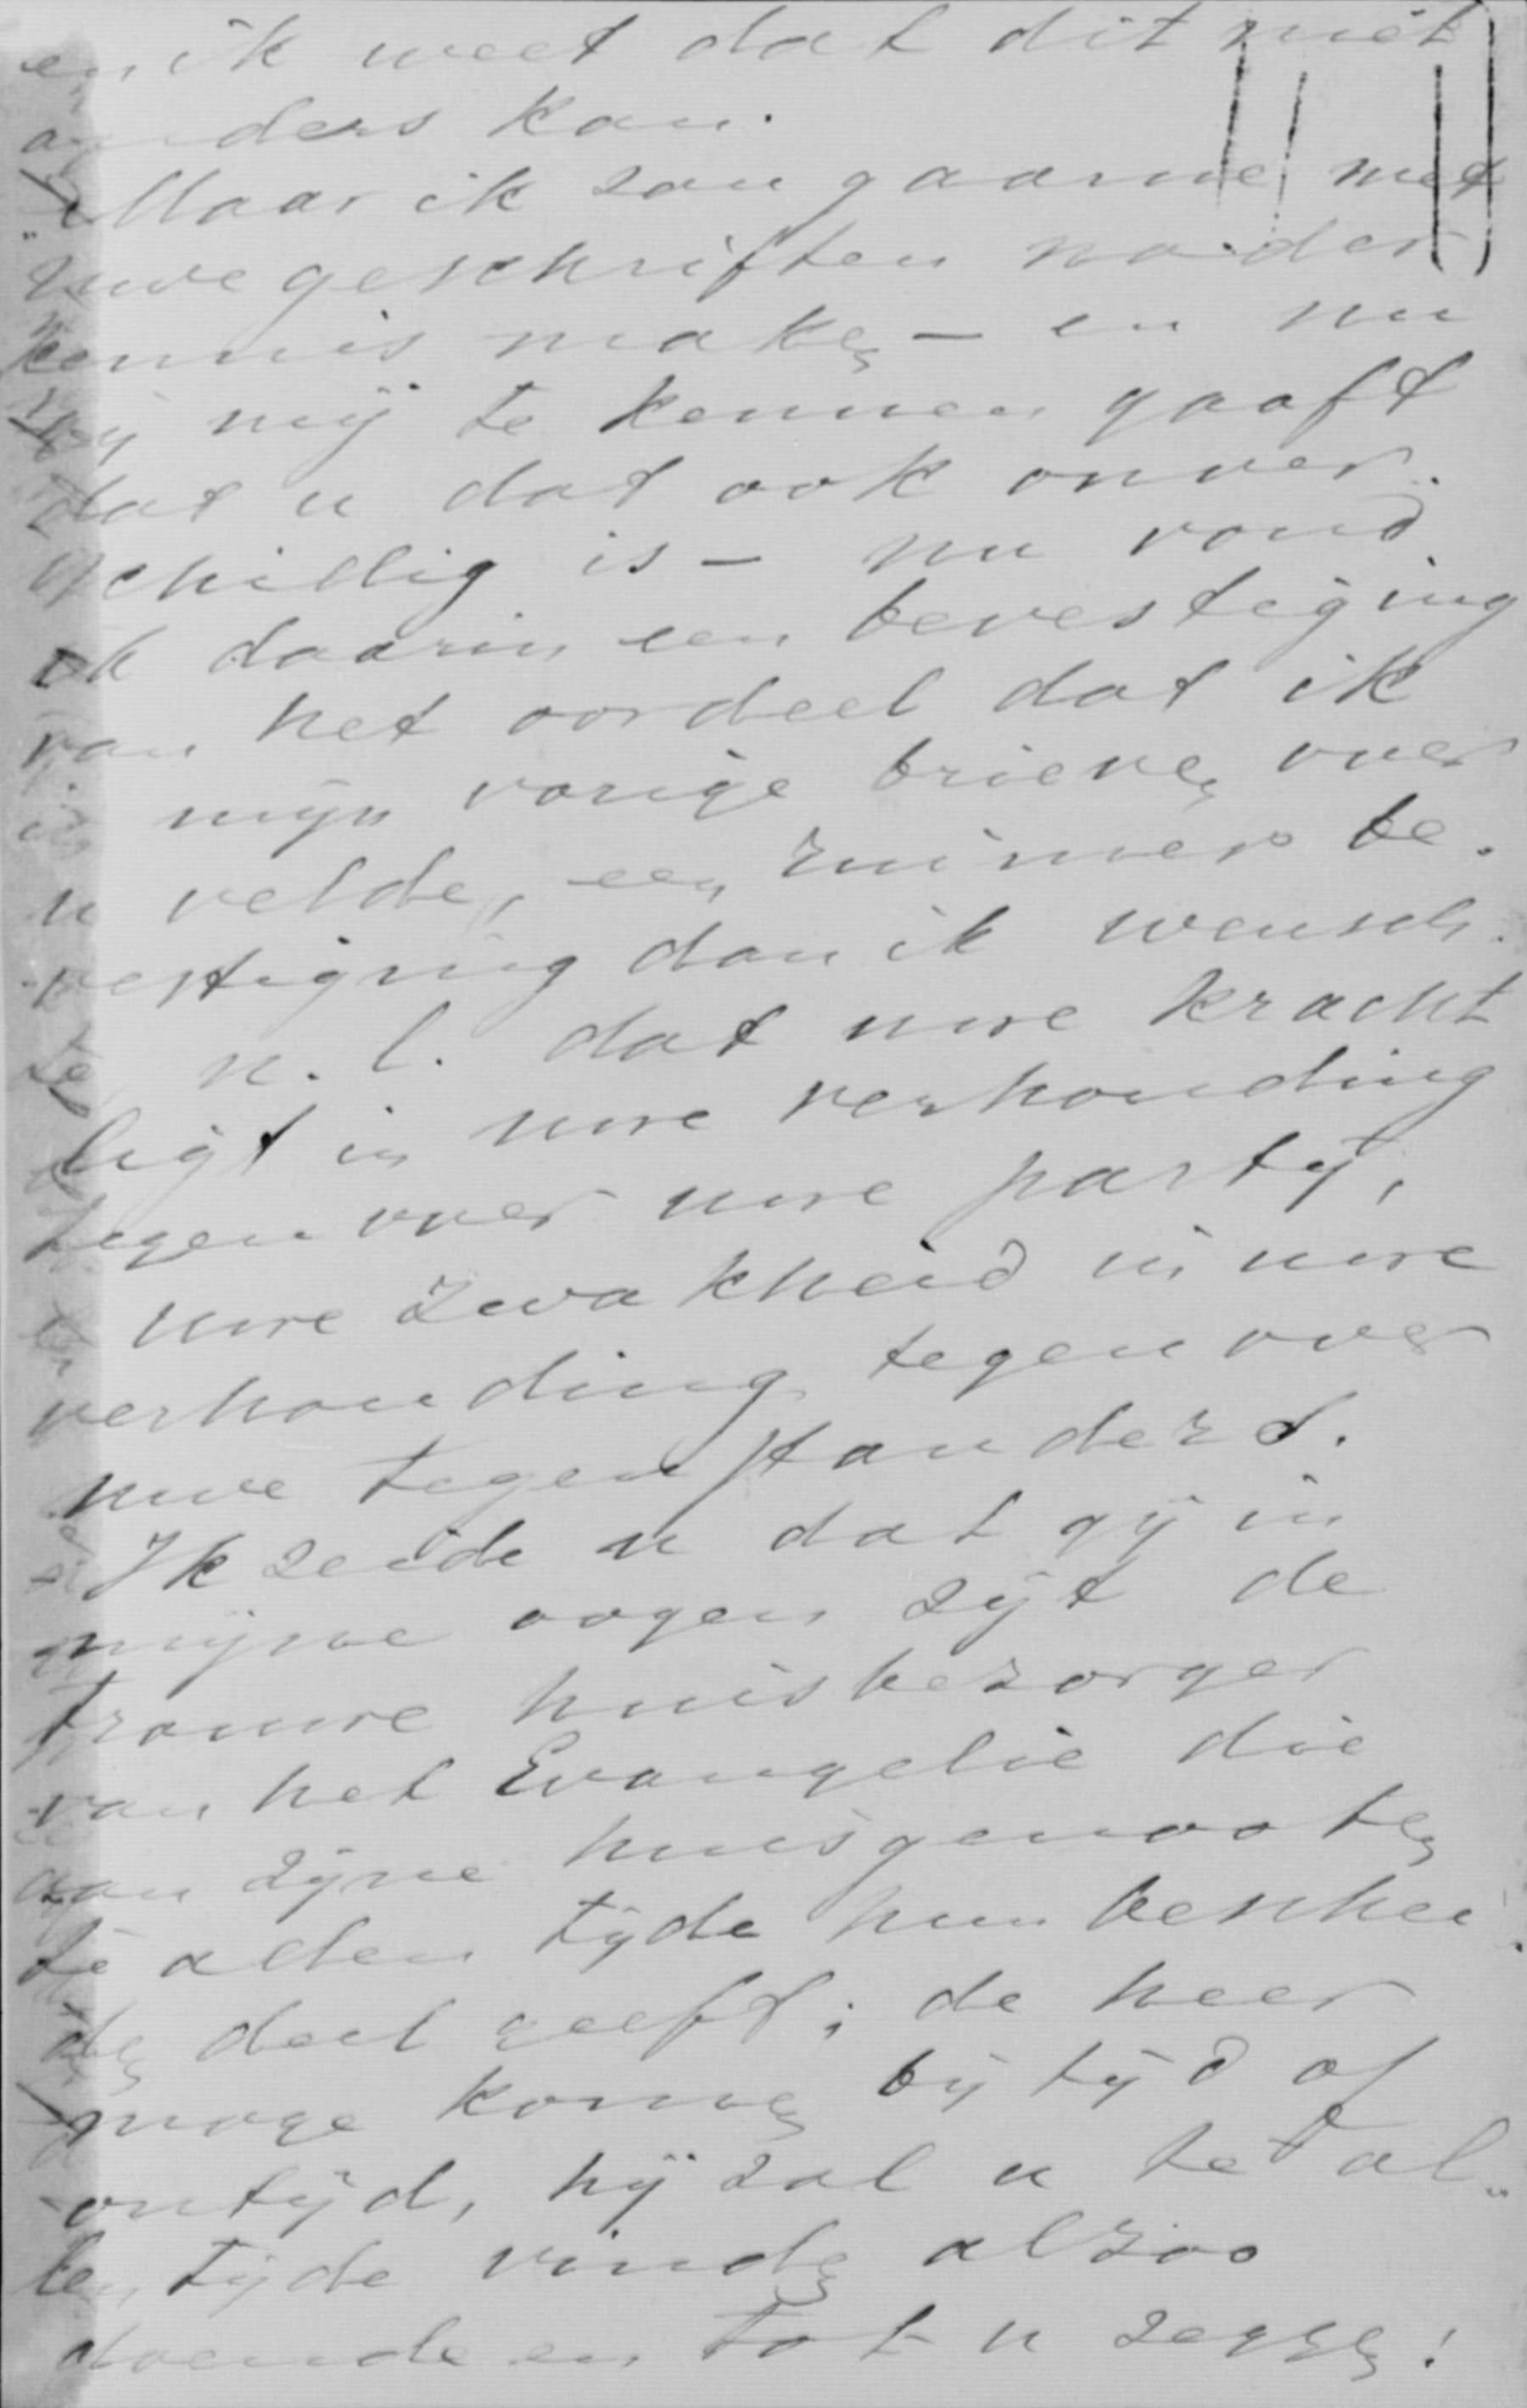 en ik weet dat dit niet
anders kan.
Maar ik zou gaarne met
uwe geschriften nader
kennis maken – en nu
gij mij te kennen gaaft
dat u dat ook onver-
schillig is – nu vond
ik daarin een bevestiging
van het oordeel dat ik
in mijn vorige brieven over
u velde, een ruimer be-
vestiging dan ik wensch-
te, n.l. dat uwe kracht
ligt in uwe verhouding
tegenover uwe partij,
uwe zwakheid in uwe
verhouding tegenover
uwe tegenstanders.
Ik zeide u dat gij in
mijne oogen zijt de
trouwe huisbezorger
van het Evangelie die
aan zijne huisgenooten
te allen tijde hun beschei-
den deel geeft; de heer
moge komen bij tijd of
ontijd, hij zal u te al-
len tijde vinden alzoo
doende en tot u zeggen: